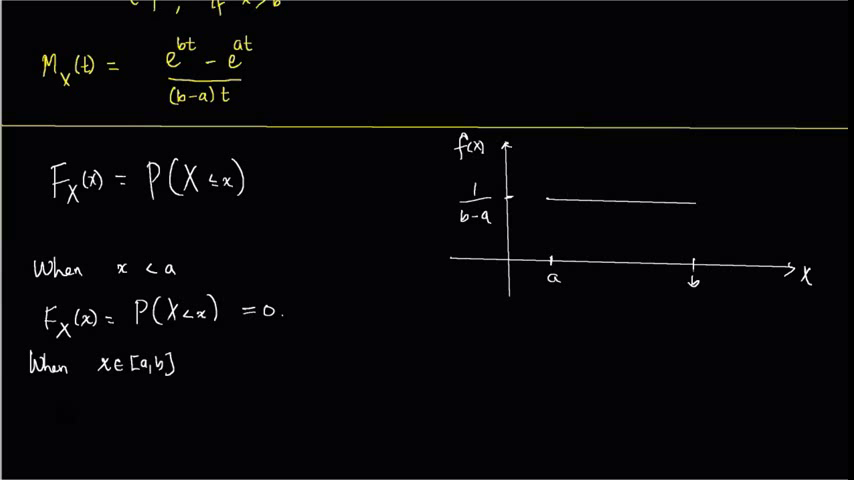 , if x > b
M_X(t) = e^{bt} - e^{at} / (b-a)t
F_X(x) = P(X ≤ x)
When x < a
F_X(x) = P(X < x) = 0.
When x ∈ [a,b]
f(x)
1/(b-a)
a
b
X